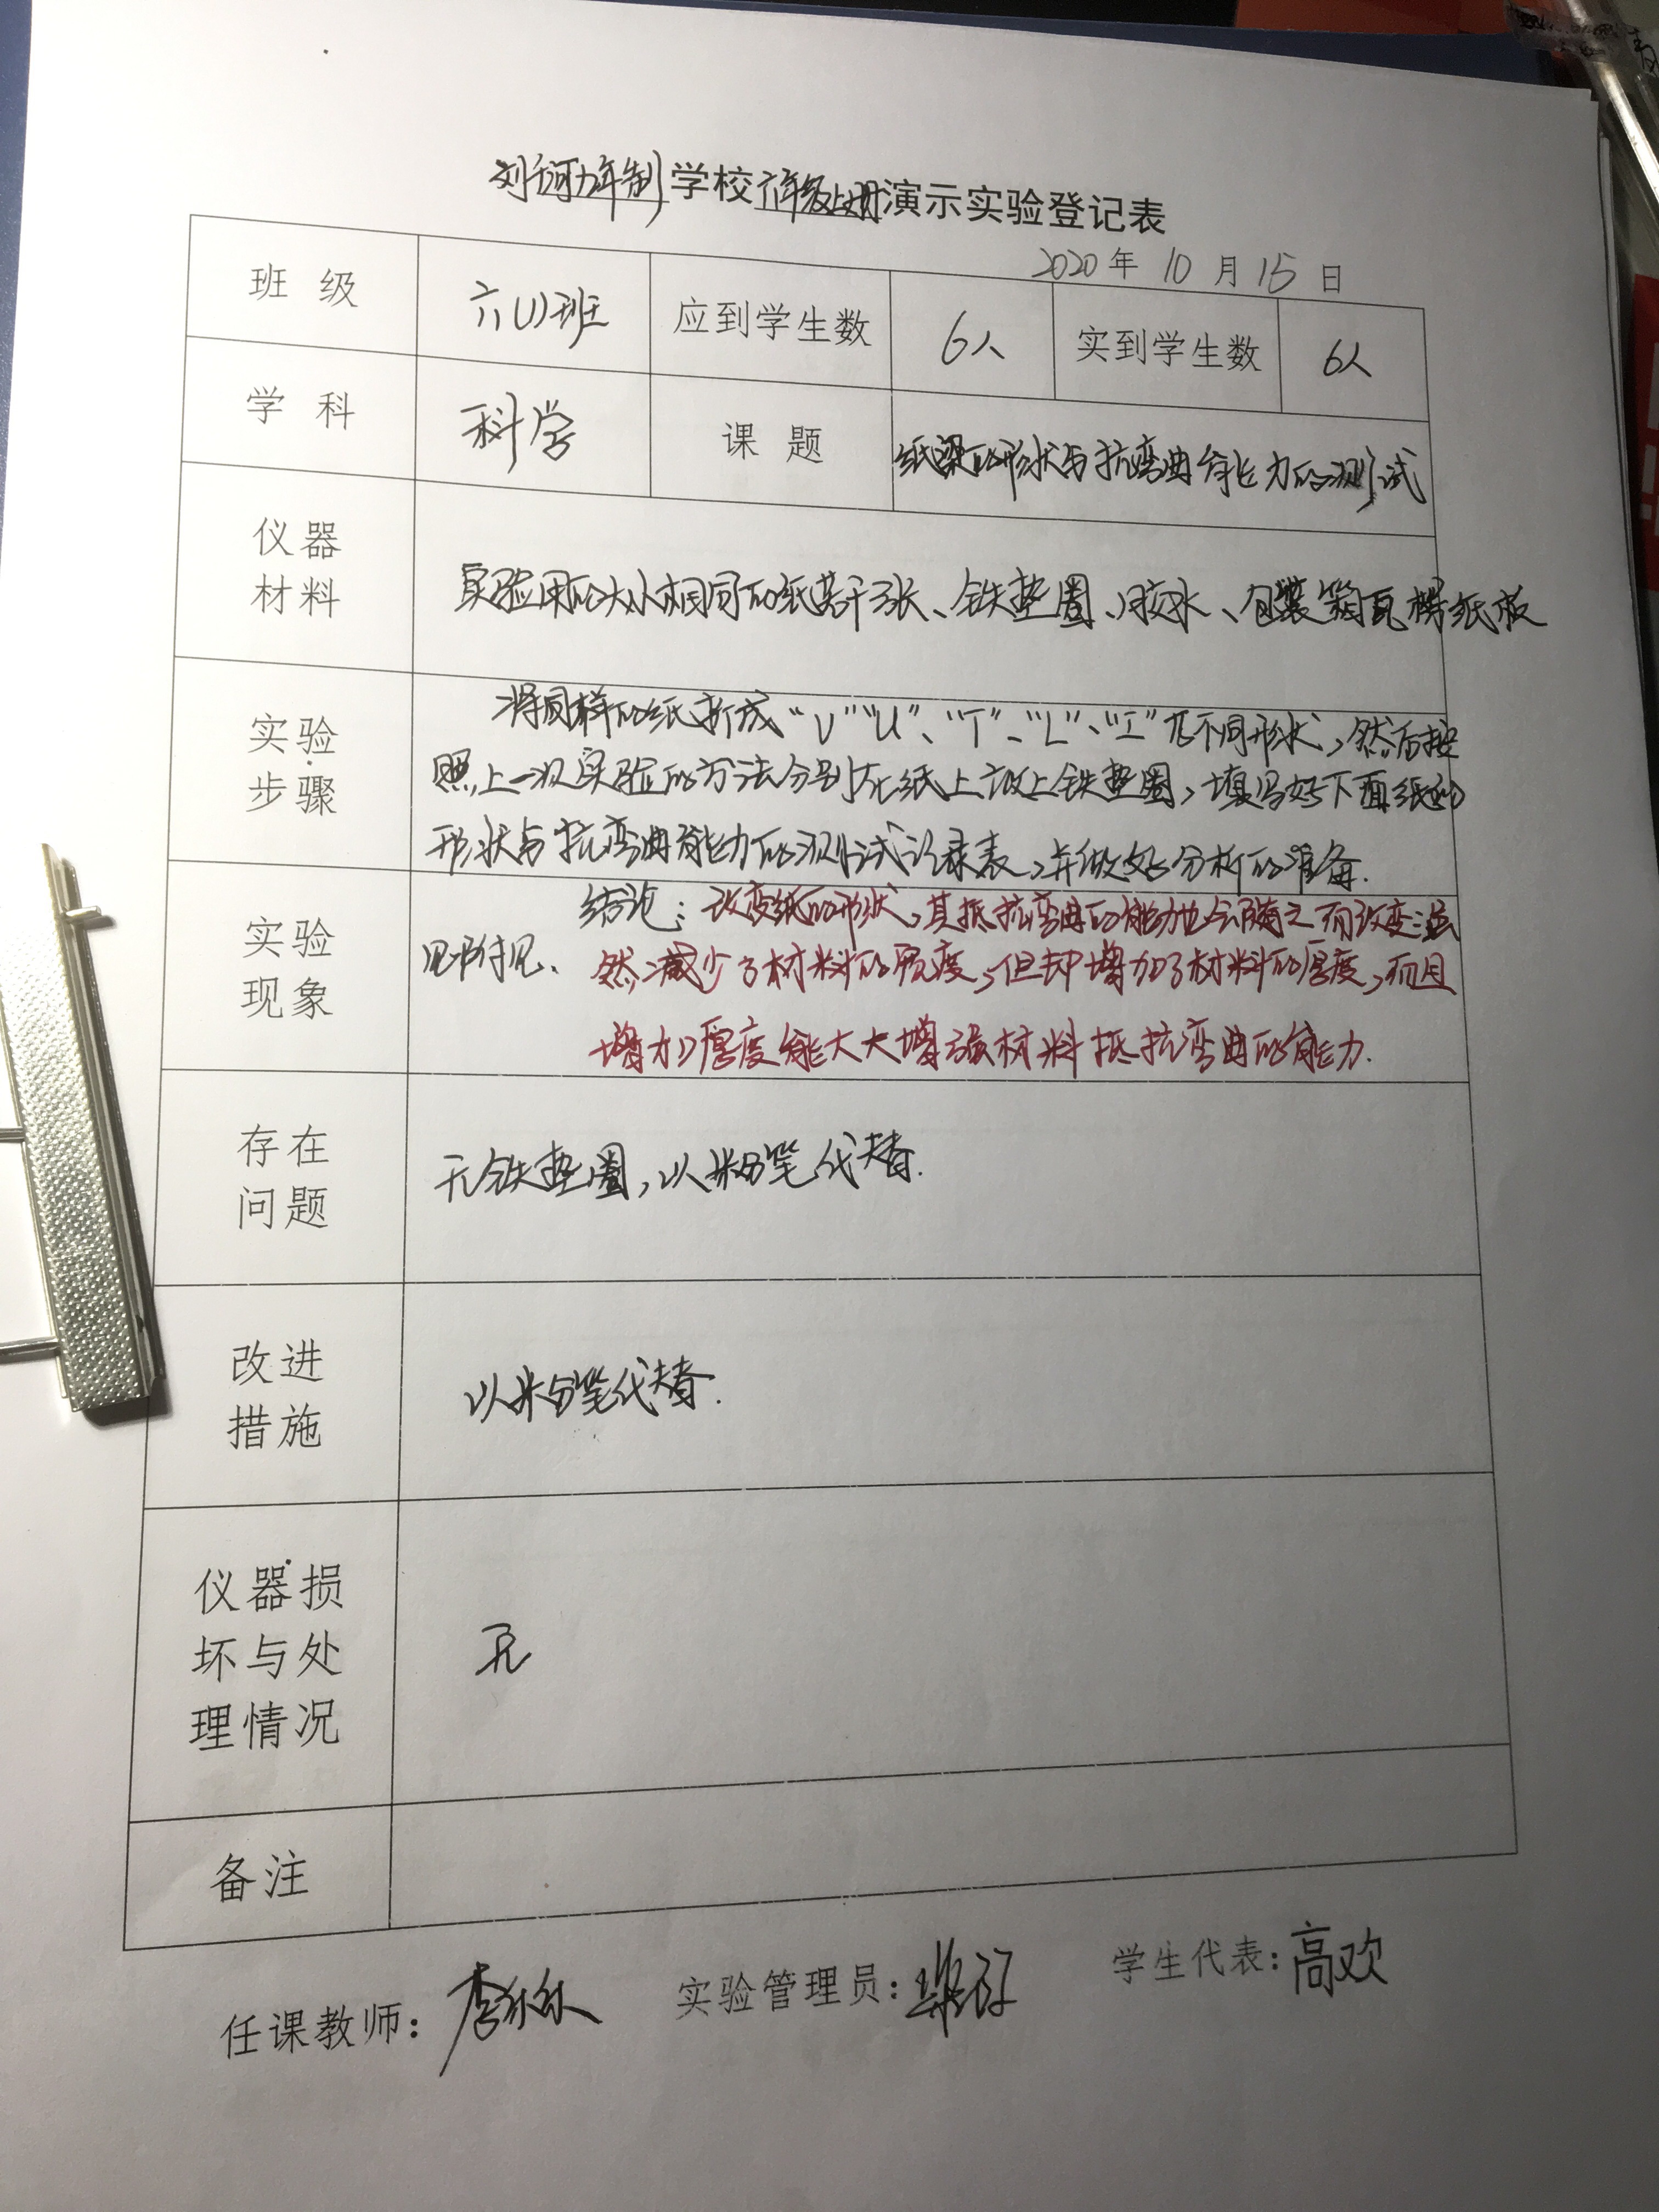 刘河九年制学校六年级上册演示实验登记表
2020年 10 月 15 日
班 级 六(1)班 应到学生数 6人 实到学生数 6人
学 科 科学 课 题 纸梁的形状与抗弯曲能力的测试
仪器
材料
实验用的大小相同的纸若干张、铁垫圈、胶水、包装箱瓦楞纸板
实验
步骤
将同样的纸折成“V”“U”、“T”、“L”、“工”等不同形状,然后按
照上一次实验的方法分别在纸上放上铁垫圈,填写好下面纸的
形状与抗弯曲能力的测试记录表,并做好分析的准备.
实验
现象
见附见.
结论:改变纸的形状,其抵抗弯曲的能力也会随之而改变;虽
然减少了材料的宽度,但却增加了材料的厚度,而且
增加厚度能大大增强材料抵抗弯曲的能力.
存在
问题
无铁垫圈,以粉笔代替.
改进
措施
以粉笔代替.
仪器损
坏与处
理情况
无
备注
任课教师: 实验管理员: 学生代表:高欢